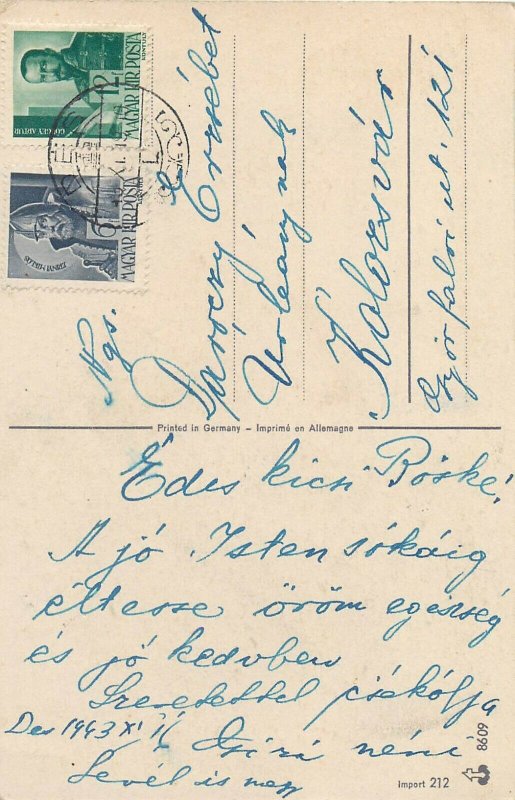 MAGYAR KIR. POSTA
12
GÖRGEY ARTUR
MAGYAR KIR. POSTA
6
Ngs.
Daróczy Erzsébet
Urleánynak
Kolozsvár
Györfalvi ut. 121
Printed in Germany – Imprimé en Allemagne
Édes kicsi Böske!
A jó Isten sókáig
éltesse öröm egésség
és jó kedvben
Szeretettel csókolja
Des 1943 XI 16 néni
Levél is megy
8609
Import 212